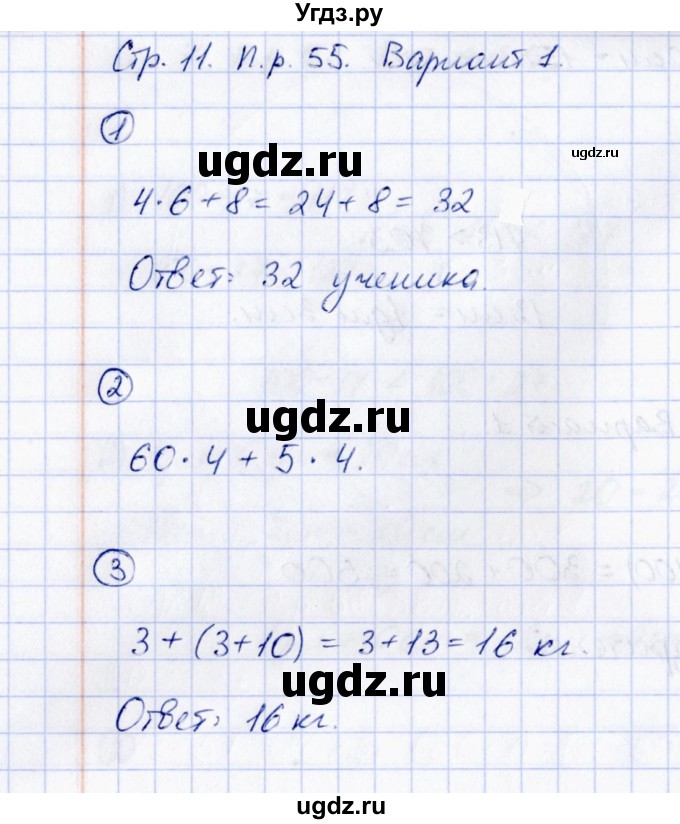 Угдз.ру
Стр. 11. П.р. 55. Вариант 1.
1
ugdz.ru
ugdz.ru
4·6+8 = 24+8 = 32
Ответ: 32 ученика.
2
ugdz.ru
60·4 + 5·4.
3
3 + (3+10) = 3+13 = 16 кг.
ugdz.ru
Ответ: 16 кг.
ugdz.ru